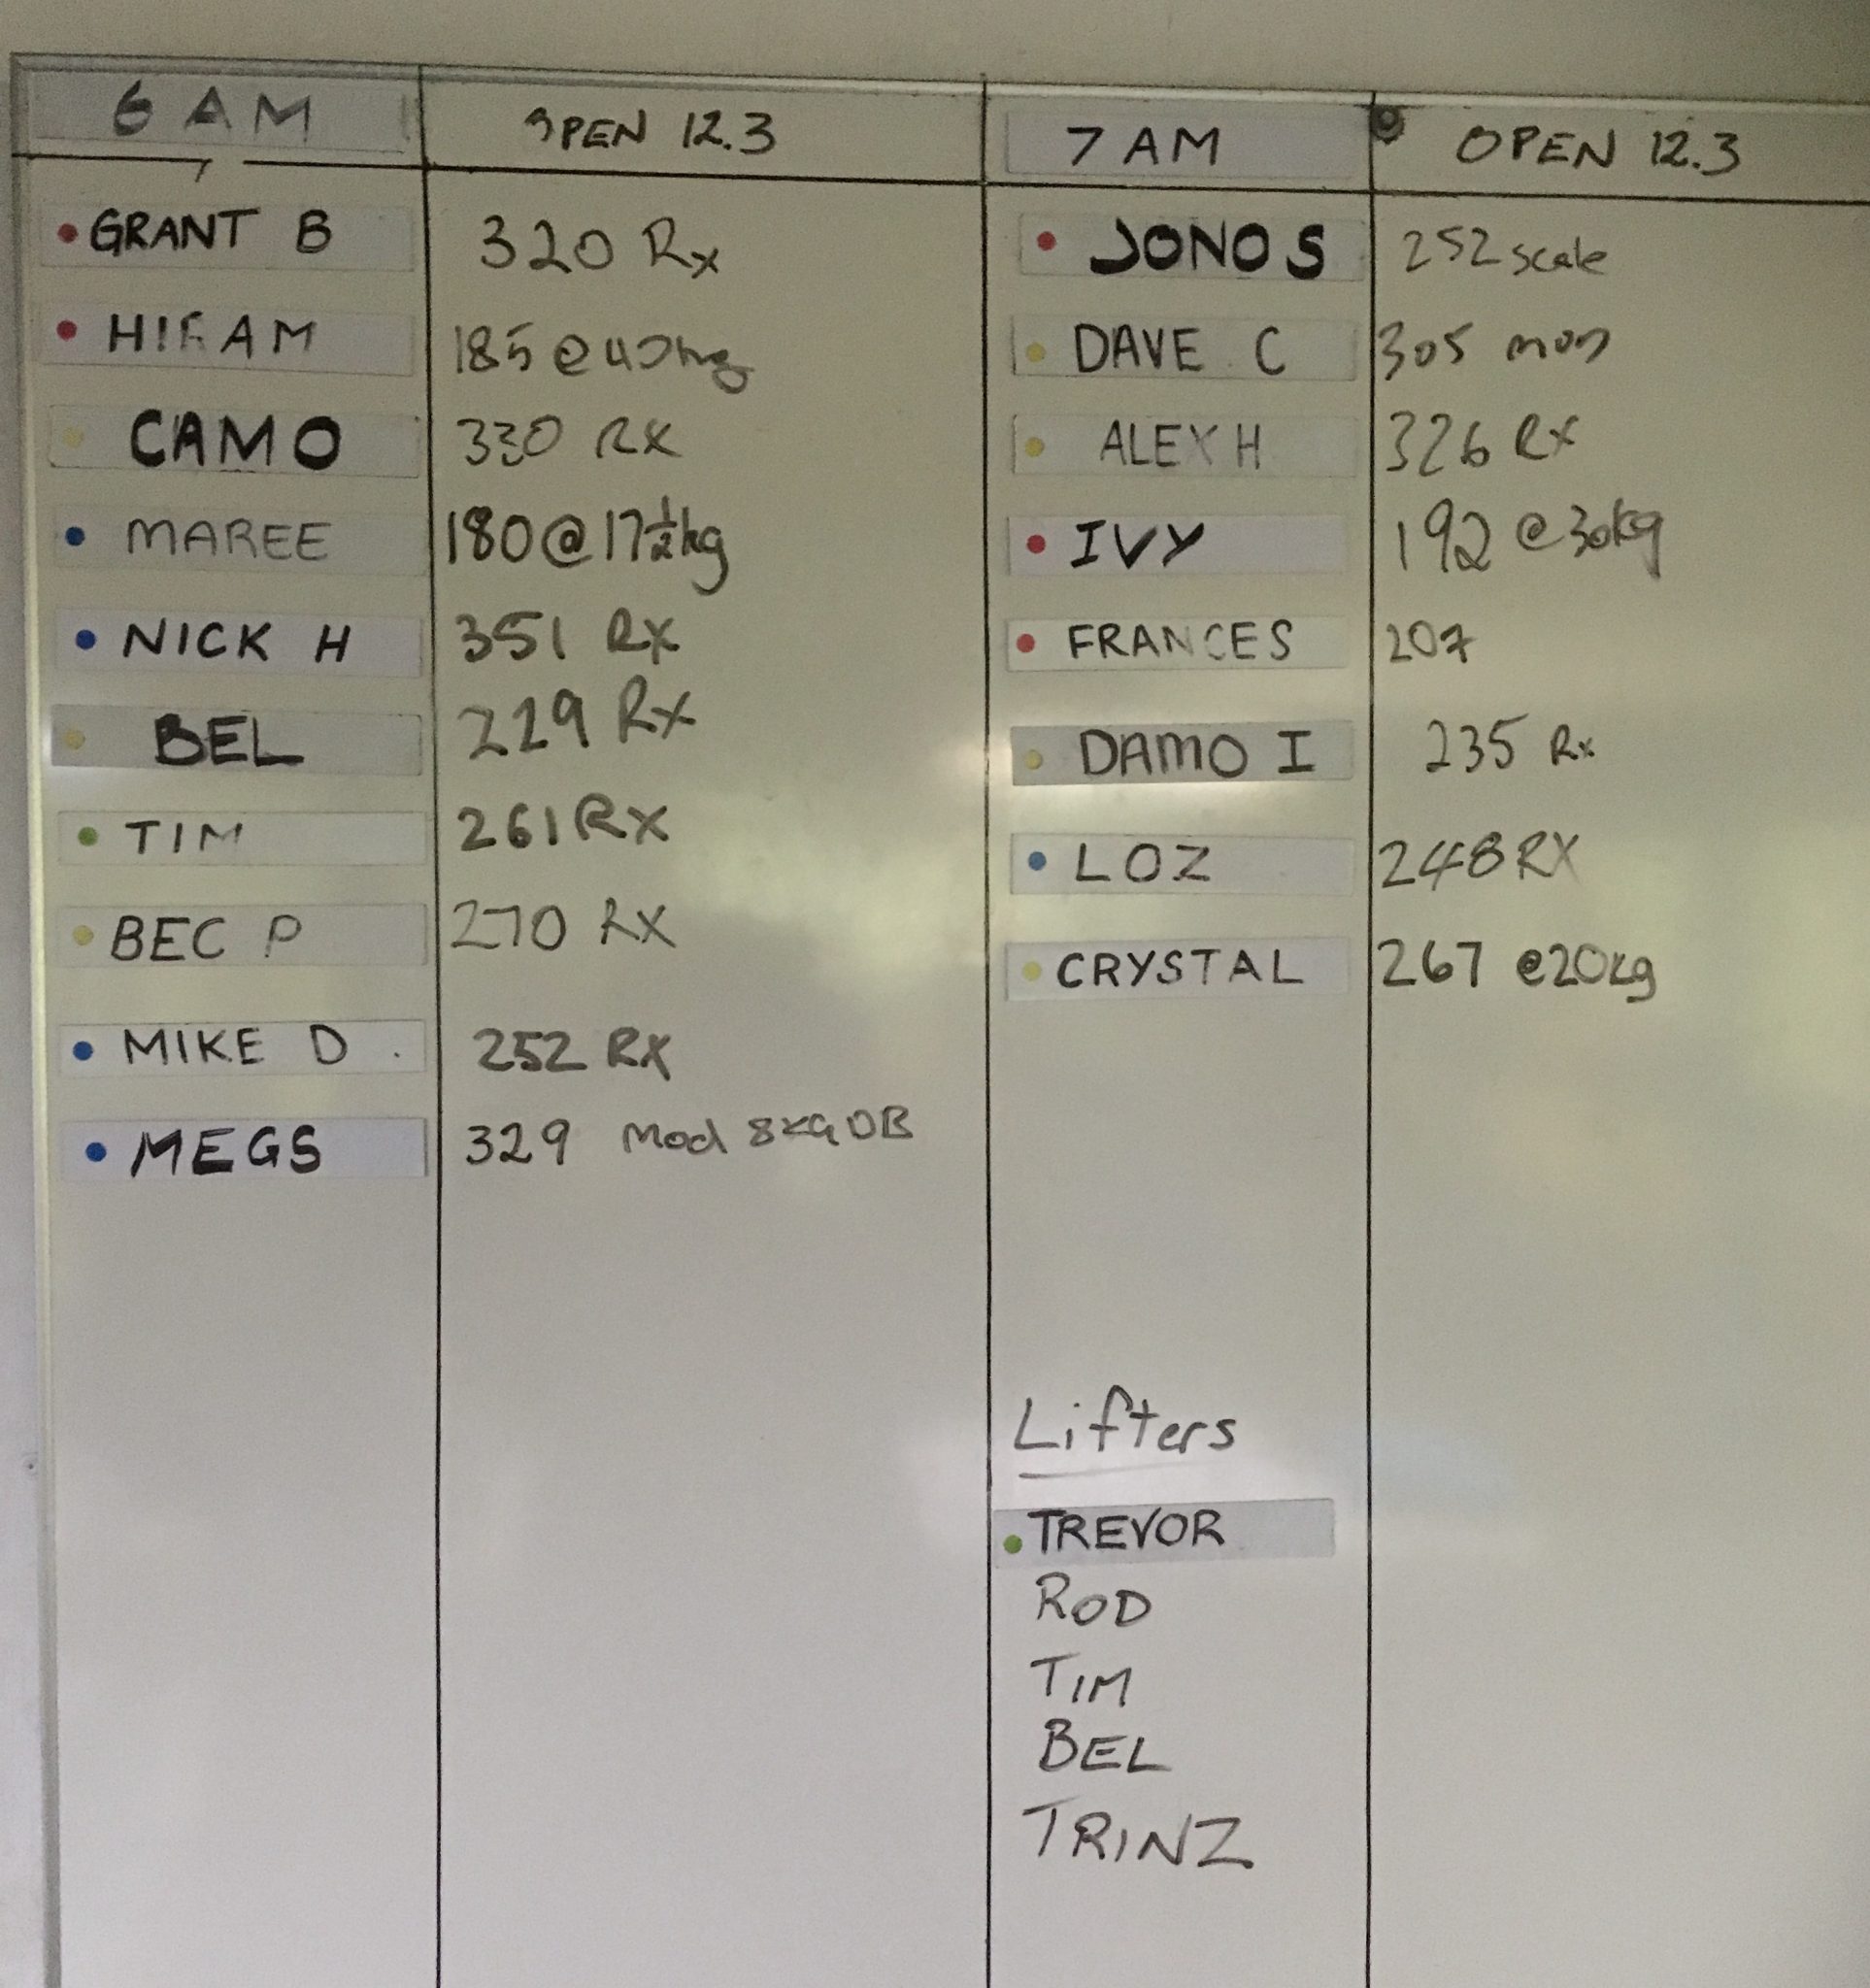 6 AM OPEN 12.3
GRANT B 320 Rx
HIRAM 185 @ 40kg
CAMO 330 RX
MAREE 180 @ 17½kg
NICK H 351 RX
BEL 229 RX
TIM 261 RX
BEC P 270 RX
MIKE D 252 RX
MEGS 329 Mod 8KG DB
7 AM OPEN 12.3
JONO S 252 scale
DAVE C 305 mod
ALEX H 326 RX
IVY 192 @ 30kg
FRANCES 207
DAMO I 235 Rx
LOZ 248 RX
CRYSTAL 267 @20kg
Lifters
TREVOR
ROD
TIM
BEL
TRINZ